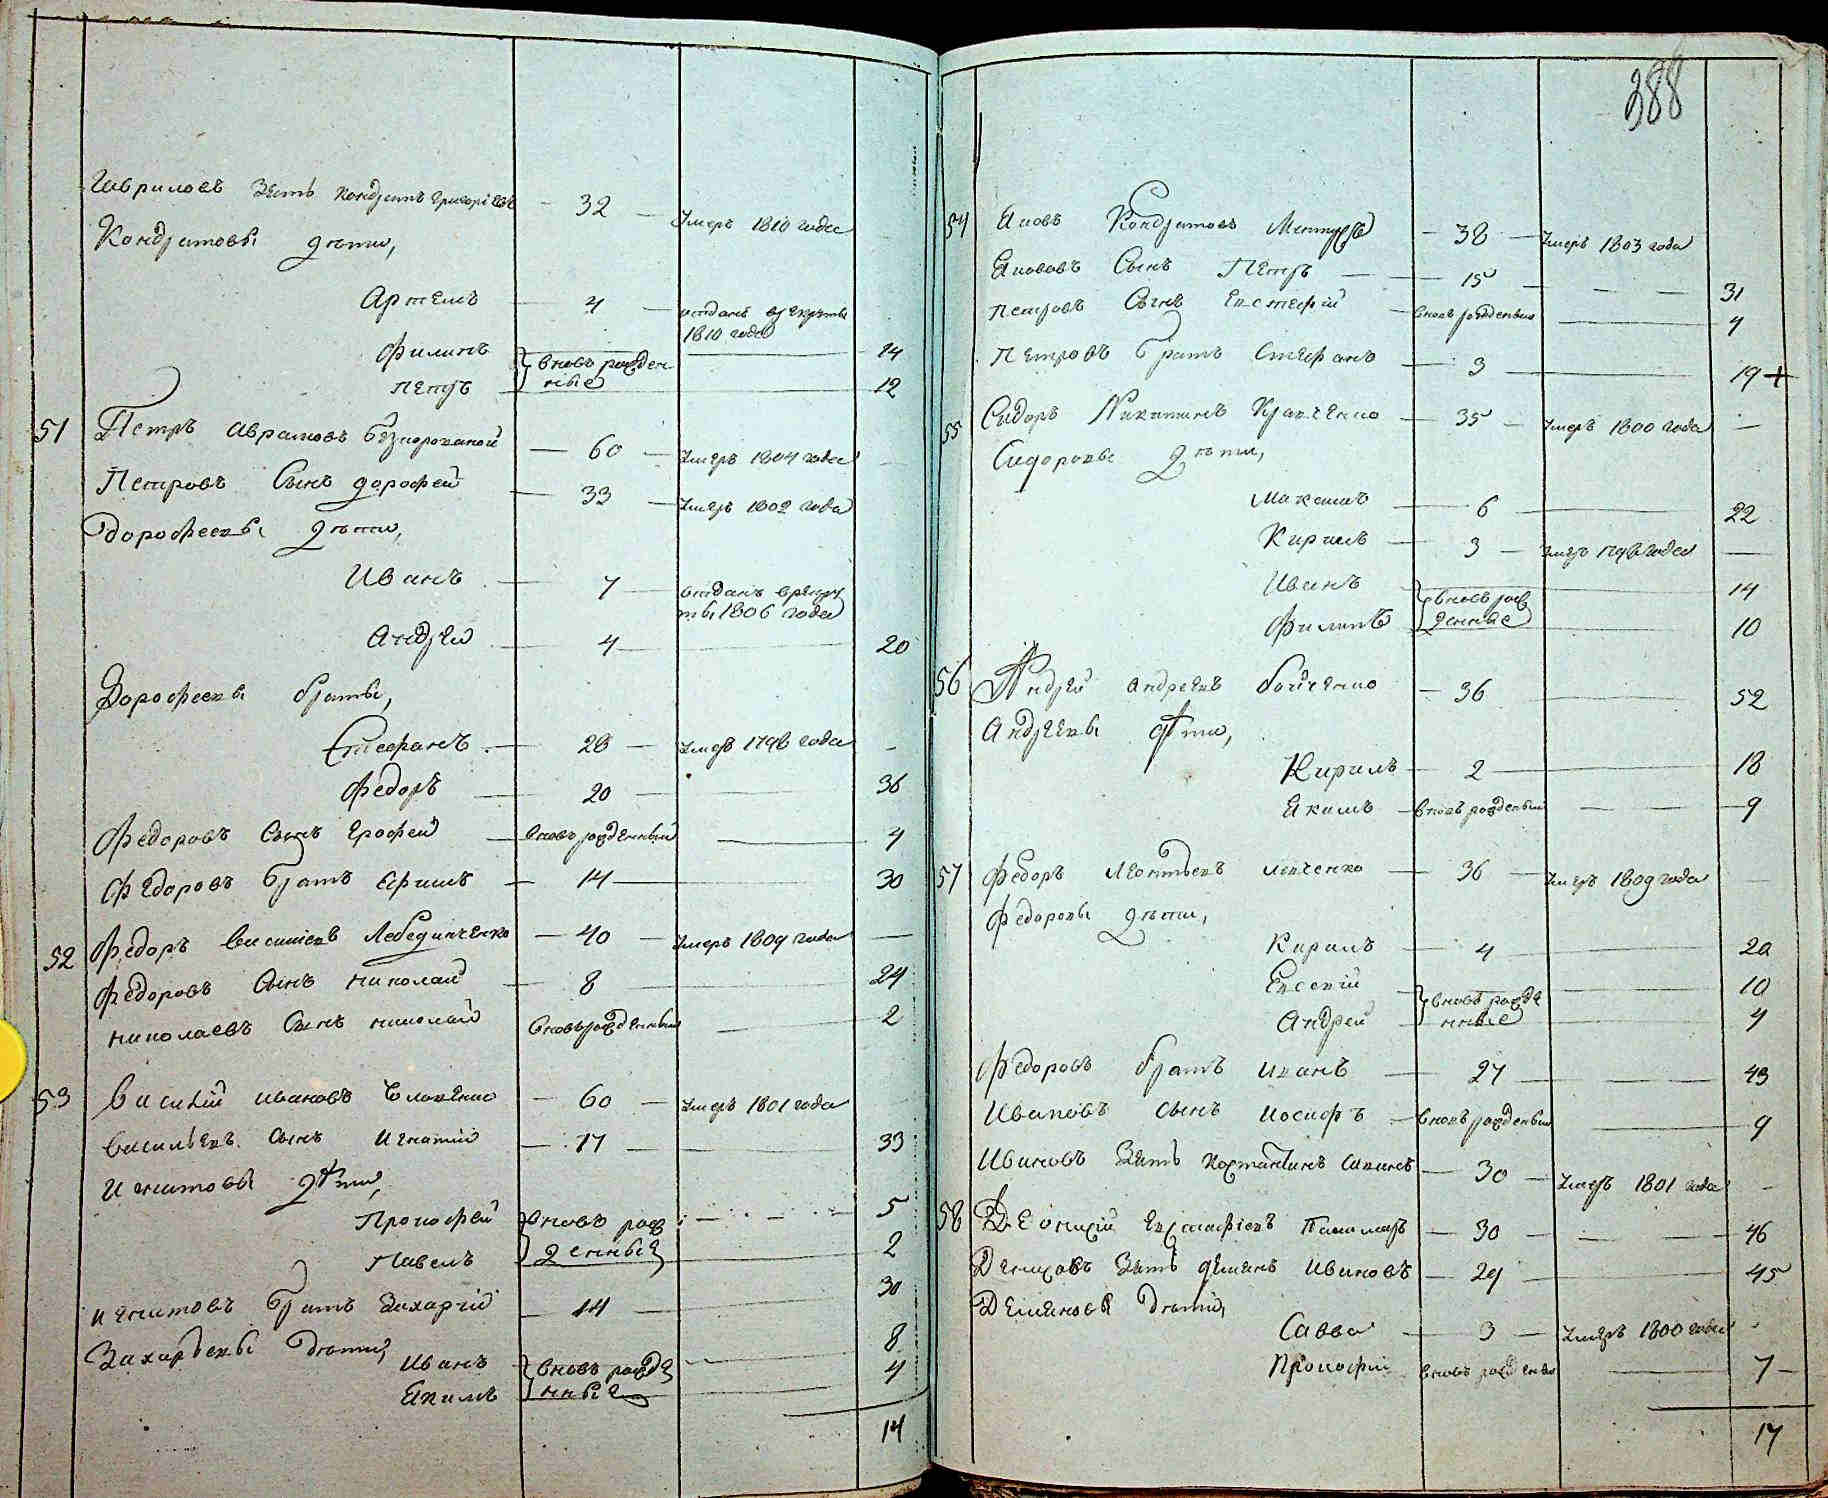 Гавриловъ Зять Кондратъ Григоріевъ — 32 — Умеръ 1810 года
Кондратовы дѣти,
Артемъ — 4 — отданъ врекруты
1810 года
Филипъ } вновь рожден — 14
Петръ ные — 12
51 Петръ Аврамовъ Безпорожаной — 60 — Умеръ 1804 года —
Петровъ Сынъ дорофей — 33 — Умеръ 1802 года
Дорофеевы дѣти,
Иванъ — 7 — отданъ врекру
ты 1806 года
Андрей — 4 — 20
Дорофеевы братьы,
Стефанъ — 28 — Умеръ 1796 года —
Федоръ — 20 — 36
Федоровъ Сынъ Ерофей — вновь рожденный — 4
Федоровъ братъ Ефимъ — 14 — 30
52 Федоръ Василіевъ Лебединченко — 40 — Умеръ 1809 года —
Федоровъ Сынъ Николай — 8 — 24
Николаевъ Сынъ Николай вновь рожденный — 2
53 Василій Ивановъ — 60 — Умеръ 1801 года
Васильевъ Сынъ Игнатій — 17 — 33
Игнатовы дѣти,
Прокофей } вновь рож — 5
Павелъ денные — 2
Игнатовъ братъ Захарій — 14 — 30
Захарьевы дѣти, 8
Иванъ } вновь рожде — 4
Екимъ нные
14
388
54 Яковъ Кондратовъ — 38 — Умеръ 1803 года
Яковъ Сынъ Петръ — 15 — 31
Петровъ Сынъ Евстафій — вновь рожденный — 4
Петровъ братъ Стефанъ — 3 — 19 +
55 Сидоръ Никитинъ Кравченко — 35 — Умеръ 1800 года —
Сидоровы дѣти,
Максимъ — 6 — 22
Кирилъ — 3 — Умеръ 1796 года —
Иванъ } вновь рож — 14
Филипъ денные — 10
56 Андрей Андреевъ Бойченко — 36 — 52
Андреевы дѣти,
Кирилъ — 2 — 18
Якимъ — вновь рожденный — 9
57 Федоръ Леонтьевъ Левченко — 36 — Умеръ 1809 года —
Федоровы дѣти,
Кирилъ — 4 — 20
Евсевій } вновь рожде — 10
Андрей нные — 4
Федоровъ братъ Иванъ — 27 — 43
Ивановъ Сынъ Иосифъ — вновь рожденный — 9
Ивановъ Зять Костантинъ — 30 — Умеръ 1801 года —
58 Деонисій Евстафіевъ — 30 — 46
Денисовъ Зять Демянъ Ивановъ — 29 — 45
Демяновы дѣти,
Савва — 3 — Умеръ 1800 года —
Прокофій вновь рожденный — 7
17